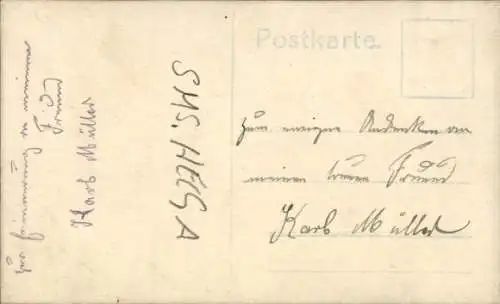 Postkarte.
zum ewigen Andenken von
meinem treuen Freund
Karl Müller
SMS. HELGA
zur Erinnerung an meinen
Freund
Karl Müller